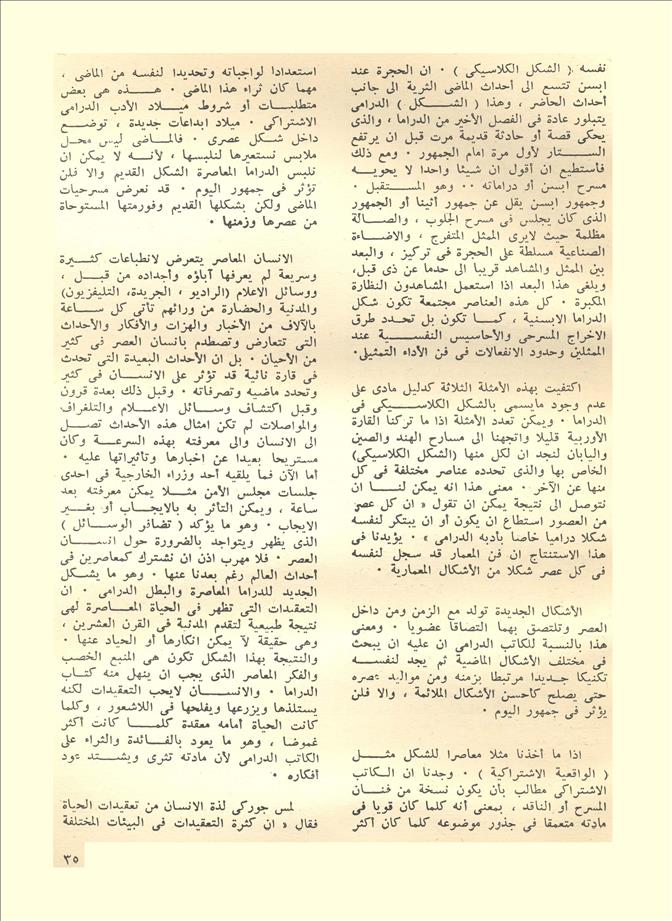 نفسه ( الشكل الكلاسيكى ) ٠ ان الحجرة عند
ابسن تتسع الى أحداث الماضى الثرية الى جانب
أحداث الحاضر ، وهذا ( الشكل ) الدرامى
يتبلور عادة فى الفصل الأخير من الدراما ، والذى
يحكى قصة أو حادثة قديمة مرت قبل ان يرتفع
الستار لأول مرة امام الجمهور ٠ ومع ذلك
فأستطيع ان أقول ان شيئا واحدا لا يحويه
مسرح ابسن أو دراماته ٠٠ وهو المستقبل ٠
وجمهور ابسن يقل عن جمهور أثينا أو الجمهور
الذى كان يجلس فى مسرح الجلوب ، والصالة
مظلمة حيث لايرى الممثل المتفرج ، والاضاءة
الصناعية مسلطة على الحجرة فى تركيز ، والبعد
بين الممثل والمشاهد قريبا الى حدما عن ذى قبل،
ويلغى هذا البعد اذا استعمل المشاهدون النظارة
المكبرة ٠ كل هذه العناصر مجتمعة تكون شكل
الدراما الابسنية ، كما تكون بل تحدد طرق
الاخراج المسرحى والأحاسيس النفسية عند
الممثلين وحدود الانفعالات فى فن الأداء التمثيلى٠
اكتفيت بهذه الأمثلة الثلاثة كدليل مادى على
عدم وجود مايسمى بالشكل الكلاسيكى فى
الدراما ٠ ويمكن تعدد الأمثلة اذا ما تركنا القارة
الأوربية قليلا واتجهنا الى مسارح الهند والصين
واليابان لنجد ان لكل منها (الشكل الكلاسيكى)
الخاص بها والذى تحدده عناصر مختلفة فى كل
منها عن الآخر ٠ معنى هذا انه يمكن لنا ان
نتوصل الى نتيجة يمكن ان تقول « ان كل عصر
من العصور استطاع ان يكون أو ان يبتكر لنفسه
شكلا دراميا خاصا بأدبه الدرامى » ٠ يؤيدنا فى
هذا الاستنتاج ان فن المعمار قد سجل لنفسه
فى كل عصر شكلا من الأشكال المعمارية ٠
الأشكال الجديدة تولد مع الزمن ومن داخل
العصر وتلتصق بهما التصاقا عضويا ٠ ومعنى
هذا بالنسبة للكاتب الدرامى ان عليه ان يبحث
فى مختلف الأشكال الماضية ثم يجد لنفسه
تكنيكا جديدا مرتبطا بزمنه ومن مواليد عصره
حتى يصلح كأحسن الأشكال الملائمة ، والا فلن
يؤثر فى جمهور اليوم ٠
اذا ما أخذنا مثلا معاصرا للشكل مثل
( الواقعية الاشتراكية ) ٠ وجدنا ان الكاتب
الاشتراكى مطالب بأن يكون نسخة من فنان
المسرح أو الناقد ، بمعنى أنه كلما كان قويا فى
مادته متعمقا فى جذور موضوعه كلما كان أكثر
استعدادا لواجباته وتحديدا لنفسه من الماضى ،
مهما كان ثراء هذا الماضى ٠ هذه هى بعض
متطلبات أو شروط ميلاد الأدب الدرامى
الاشتراكى ٠ ميلاد ابداعات جديدة ، توضع
داخل شكل عصرى ٠ فالماضى ليس محل
ملابس نستعيرها لنلبسها ، لأنه لا يمكن ان
نلبس الدراما المعاصرة الشكل القديم والا فلن
تؤثر فى جمهور اليوم ٠ قد نعرض مسرحيات
الماضى ولكن بشكلها القديم وفورمتها المستوحاة
من عصرها وزمنها ٠
الانسان المعاصر يتعرض لانطباعات كثيرة
وسريعة لم يعرفها آباؤه وأجداده من قبل ،
ووسائل الاعلام (الراديو ، الجريدة، التليفزيون)
والمدنية والحضارة من ورائهم تأتى كل ساعة
بآلاف من الأخبار والهزات والأفكار والأحداث
التى تتعارض وتصطدم بانسان العصر فى كثير
من الأحيان ٠ بل ان الأحداث البعيدة التى تحدث
فى قارة نائية قد تؤثر على الانسان فى كثير
وتحدد ماضيه وتصرفاته ٠ وقبل ذلك بعدة قرون
وقبل اكتشاف وسائل الاعلام والتلغراف
والمواصلات لم تكن امثال هذه الأحداث تصل
الى الانسان والى معرفته بهذه السرعة وكان
مستريحا بعيدا عن اخبارها وتأثيراتها عليه ٠
أما الآن فما يلقيه أحد وزراء الخارجية فى احدى
جلسات مجلس الأمن مثلا يمكن معرفته بعد
ساعة ، ويمكن التأثر به بالايجاب أو بغير
الايجاب ٠ وهو ما يؤكد ( تضافر الوسائل )
الذى يظهر ويتواجد بالضرورة حول انسان
العصر ٠ فلا مهرب اذن ان نشترك كمعاصرين فى
أحداث العالم رغم بعدنا عنها ٠ وهو ما يشكل
الجديد للدراما المعاصرة والبطل الدرامى ٠ ان
التعقيدات التى تظهر فى الحياة المعاصرة لهى
نتيجة طبيعية لتقدم المدنية فى القرن العشرين ،
وهى حقيقة لا يمكن انكارها أو الحياد عنها ٠
والنتيجة بهذا الشكل تكون هى المنبع الخصب
والفكر المعاصر الذى يجب ان ينهل منه كتاب
الدراما ٠ والانسان لايحب التعقيدات لكنه
يستلذها ويزرعها ويفلحها فى اللاشعور ، وكلما
كانت الحياة أمامه معقدة كلما كانت أكثر
غموضا ، وهو ما يعود بالفائدة والثراء على
الكاتب الدرامى لأن مادته تثرى ويشتد عود
أفكاره ٠
لمس جوركى لذة الانسان من تعقيدات الحياة
فقال « ان كثرة التعقيدات فى البيئات المختلفة
٣٥